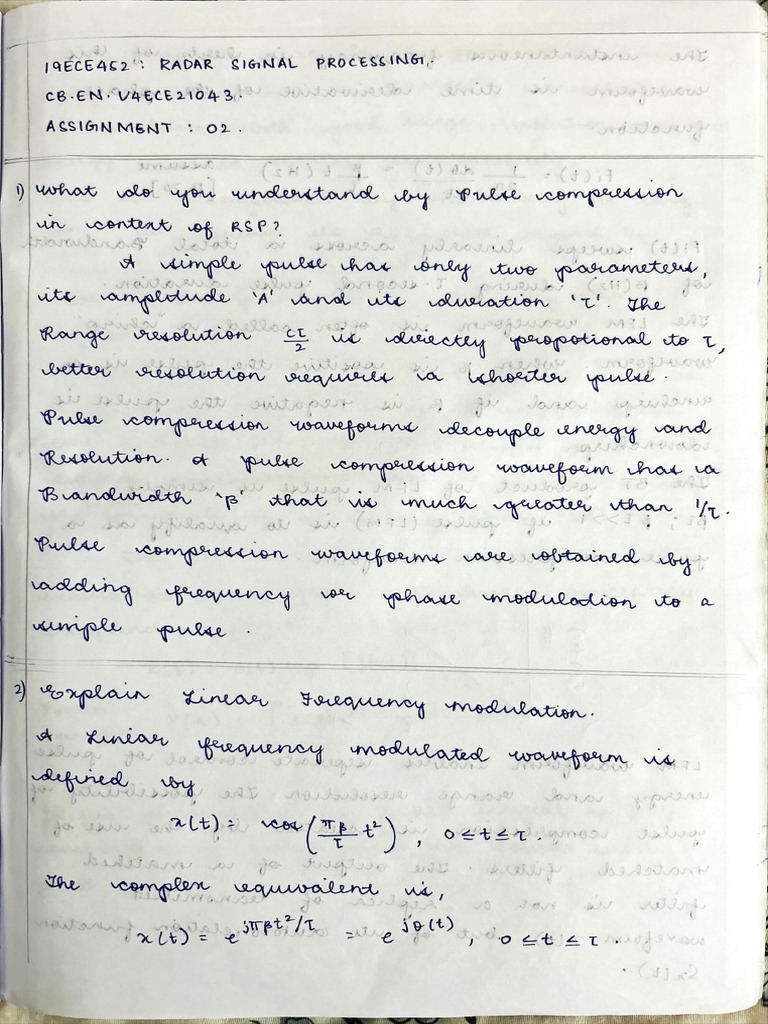 19ECE452 : RADAR SIGNAL PROCESSING.
CB.EN.U4ECE21043.
ASSIGNMENT : 02.
1) What do you understand by Pulse compression
in context of RSP?
A simple pulse has only two parameters,
its amplitude 'A' and its duration 'τ'. The
Range resolution cτ/2 is directly propotional to τ,
better resolution requires a shorter pulse.
Pulse compression waveforms decouple energy and
Resolution. A pulse compression waveform has a
Bandwidth 'β' that is much greater than 1/τ.
Pulse compression waveforms are obtained by
adding frequency or phase modulation to a
simple pulse.
2) Explain Linear Frequency modulation.
A Linear frequency modulated waveform is
defined by
x(t) = cos(πβ/τ t²), 0 ≤ t ≤ τ.
The complex equivalent is,
x(t) = e^(jπβt²/τ) = e^(jθ(t)), 0 ≤ t ≤ τ.